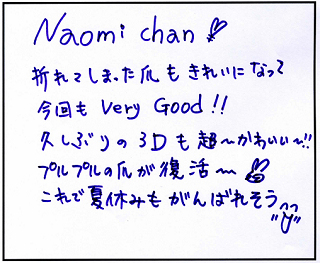 Naomi chan
折れてしまった爪もきれいになって
今回も very Good!!
久しぶりの3Dも超〜かわいい〜!!
プルプルの爪が復活〜
これで夏休みもがんばれそう